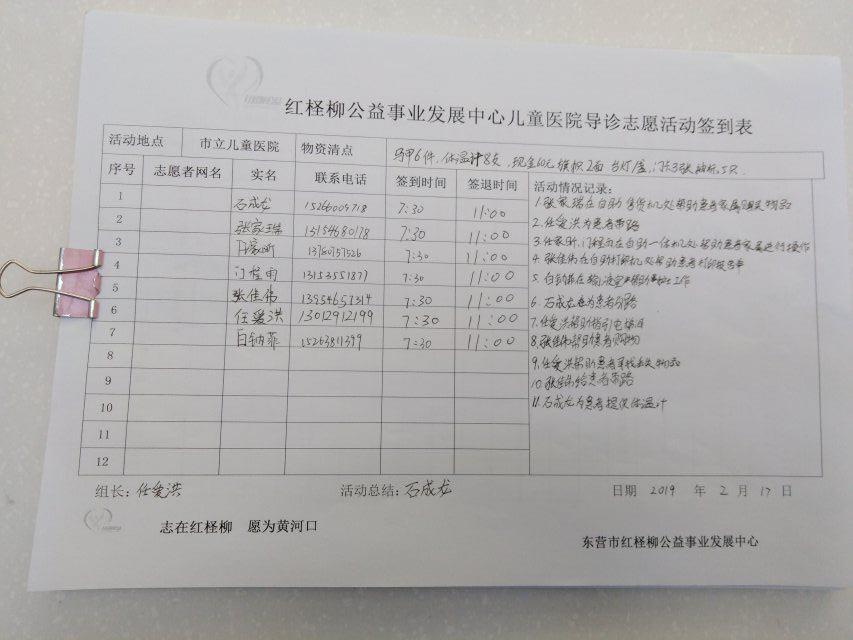 红柽柳公益事业发展中心儿童医院导诊志愿活动签到表
活动地点 市立儿童医院 物资清点 马甲6件,体温计8支,现金60元 旗帜2面 台灯1座,门卡3张
序号 志愿者网名 实名 联系电话 签到时间 签退时间 活动情况记录:
1 石成龙 15266009718 7:30 11:00
2 张家瑞 13154680178 7:30 11:00
3 13760757526 7:30 11:00
4 门程雨 13153551877 7:30 11:00
5 张佳伟 13954651314 7:30 11:00
6 任爱洪 13012912199 7:30 11:00
7 白钠菲 15263811399 7:30 11:00
8
9
10
11
12
1.张家瑞在自助售货机处帮助患者家属购买物品
2.任爱洪为患者带路
3.门程雨在自助一体机处帮助患者家属进行操作
4.张佳伟在自助打印机处帮助患者打印报告单
5.白钠菲在输液室帮助护士工作
6.石成龙在为患者引路
7.任爱洪帮助指引电梯口
8.张佳伟帮助患者购物
9.任爱洪帮助患者寻找丢失物品
10.张佳伟给患者带路
11.石成龙为患者提供体温计
组长:任爱洪 活动总结:石成龙 日期 2019 年 2 月 17 日
志在红柽柳 愿为黄河口
东营市红柽柳公益事业发展中心